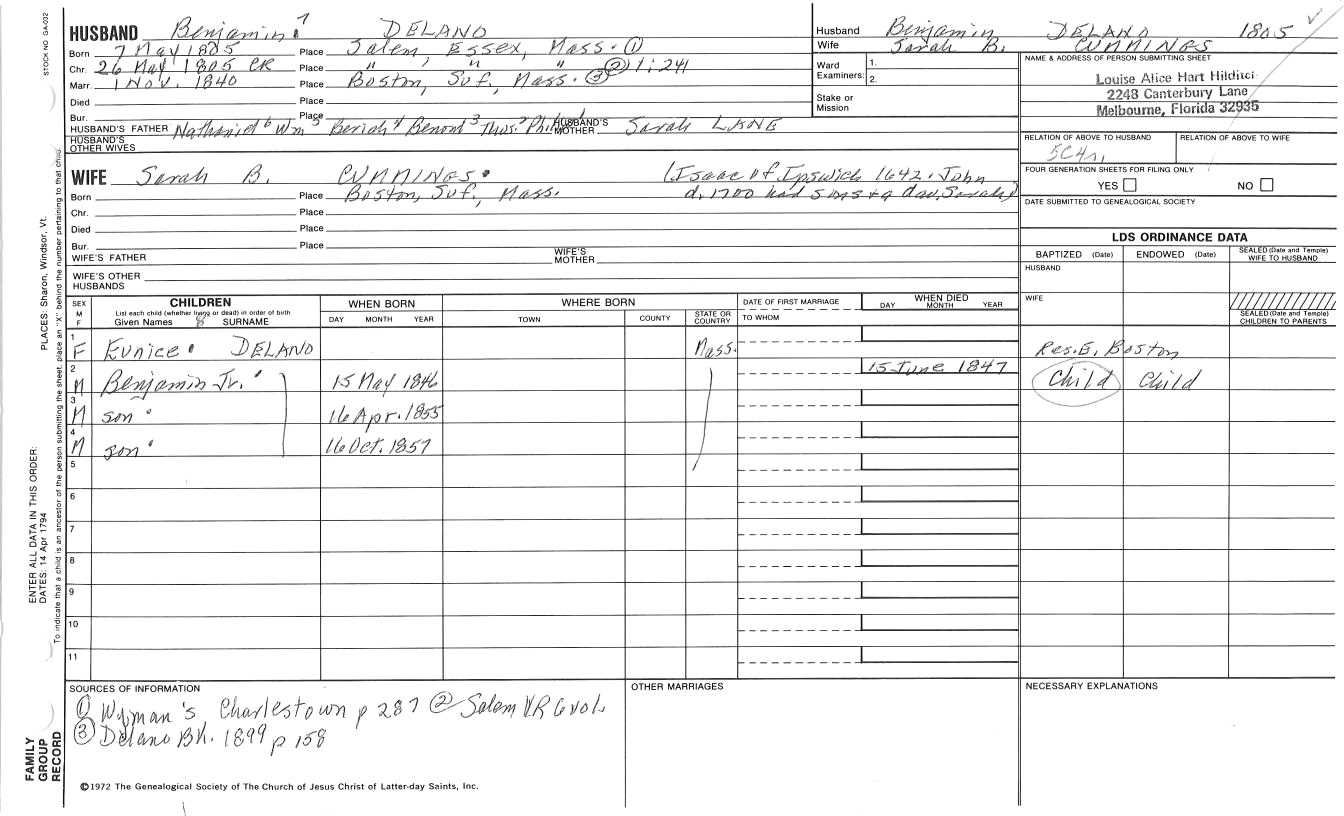 HUSBAND Benjamin 7 DELANO
Born 7 May 1805 Place Salem Essex, Mass. ①
Chr. 26 May 1805 CR Place " , " " ② 1:241
Marr. 1 Nov. 1840 Place Boston, Suf, Mass. ③
Died Place
Bur. Place
HUSBAND'S FATHER Nathaniel 6 Wm 5 Beriah 4 Benoni 3 Thos. 2 Philip 1 HUSBAND'S MOTHER Sarah LANE
HUSBAND'S OTHER WIVES
WIFE Sarah B. CUMMINGS. (Isaac of Ipswich 1642. John
Born Place Boston, Suf, Mass. d. 1700 had 5 sons & a dau, Sarah)
Chr. Place
Died Place
Bur. Place
WIFE'S FATHER WIFE'S MOTHER
WIFE'S OTHER HUSBANDS
Husband Benjamin DELANO 1805
Wife Sarah B. CUMMINGS
Ward Examiners: 1. 2.
Stake or Mission
NAME & ADDRESS OF PERSON SUBMITTING SHEET
Louise Alice Hart Hilditch
2248 Canterbury Lane
Melbourne, Florida 32935
RELATION OF ABOVE TO HUSBAND RELATION OF ABOVE TO WIFE
5C4r.
FOUR GENERATION SHEETS FOR FILING ONLY
YES NO
DATE SUBMITTED TO GENEALOGICAL SOCIETY
LDS ORDINANCE DATA
BAPTIZED (Date) ENDOWED (Date) SEALED (Date and Temple) WIFE TO HUSBAND
HUSBAND
WIFE
SEALED (Date and Temple) CHILDREN TO PARENTS
SEX M F CHILDREN List each child (whether living or dead) in order of birth Given Names 8 SURNAME WHEN BORN DAY MONTH YEAR WHERE BORN TOWN COUNTY STATE OR COUNTRY DATE OF FIRST MARRIAGE TO WHOM WHEN DIED DAY MONTH YEAR
1 F Eunice DELANO Mass. Res. E. Boston
2 M Benjamin Jr. 15 May 1846 15 June 1847 Child Child
3 M son 16 Apr. 1855
4 M son 16 Oct. 1857
5
6
7
8
9
10
11
SOURCES OF INFORMATION
① Wyman's, Charlestown p 287 ② Salem VR 6 vol.
③ Delano Bk. 1899 p 158
OTHER MARRIAGES
NECESSARY EXPLANATIONS
©1972 The Genealogical Society of The Church of Jesus Christ of Latter-day Saints, Inc.
STOCK NO GA-032
PLACES: Sharon, Windsor, Vt.
ENTER ALL DATA IN THIS ORDER:
DATES: 14 Apr 1794
To indicate that a child is an ancestor of the person submitting the sheet, place an "X" behind the number pertaining to that child.
FAMILY GROUP RECORD